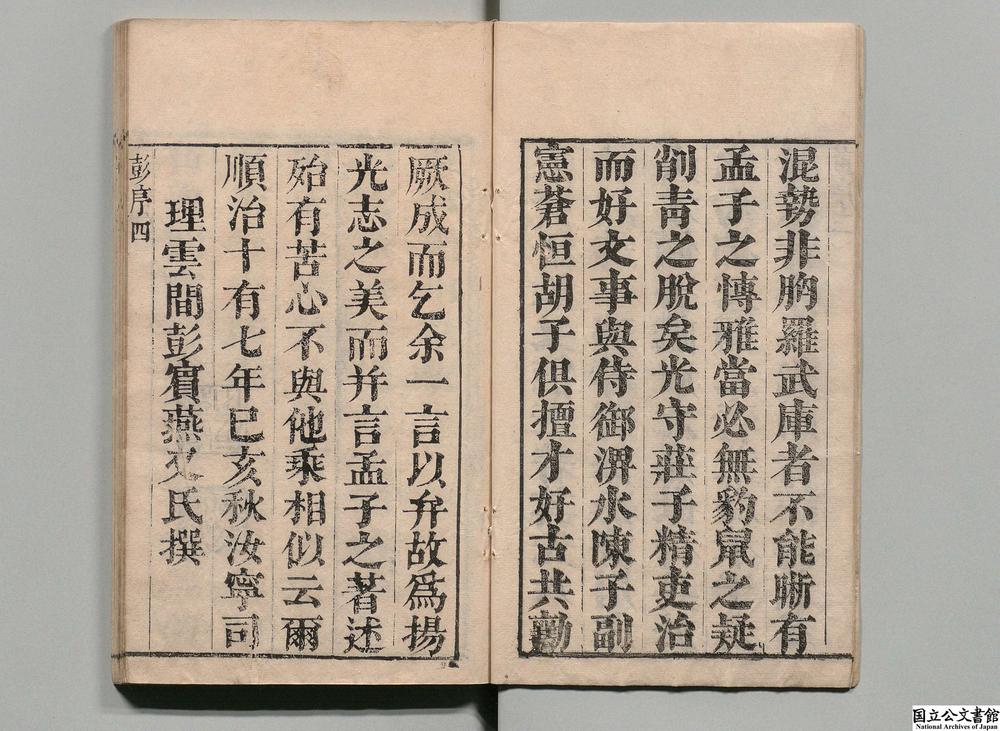 混勢非胸羅武庫者不能晰有
孟子之慱雅當必無豹鼠之疑
削靑之脫矣光守莊子精吏治
而好文事與侍御淠水陳子副
憲蒼恒胡子俱擅才好古共勷
厥成而乞余一言以弁故爲揚
光志之美而并言孟子之著述
殆有苦心不與他乘相似云爾
順治十有七年巳亥秋汝寧司
理雲間彭賔燕又氏撰
彭序四
国立公文書館
National Archives of Japan